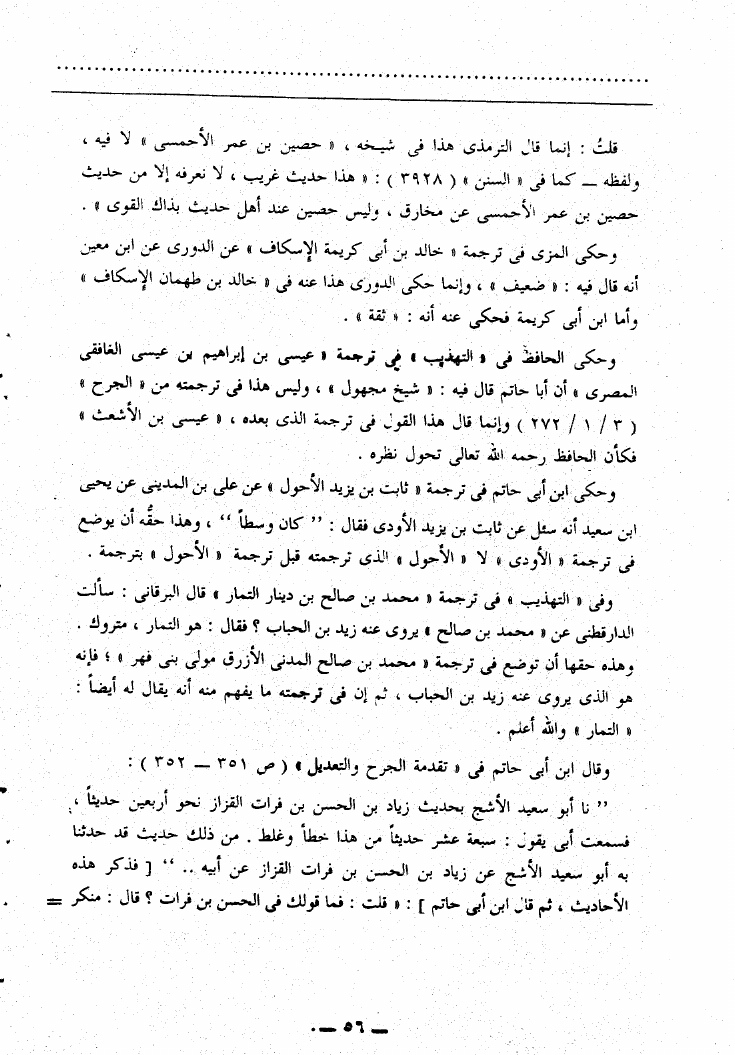 قلتُ : إنما قال الترمذى هذا فى شيخه ، « حصين بن عمر الأحمسى » لا فيه ،
ولفظه ــ كما فى « السنن » ( ٣٩٢٨ ) : « هذا حديث غريب ، لا نعرفه إلا من حديث
حصين بن عمر الأحمسى عن مخارق ، وليس حصين عند أهل حديث بذاك القوى » .
وحكى المزى فى ترجمة « خالد بن أبى كريمة الإسكاف » عن الدورى عن ابن معين
أنه قال فيه : « ضعيف » ، وإنما حكى الدورى هذا عنه فى « خالد بن طهمان الإسكاف »
وأما ابن أبى كريمة فحكى عنه أنه : « ثقة » .
وحكى الحافظ فى « التهذيب » فى ترجمة « عيسى بن إبراهيم بن عيسى الغافقى
المصرى » أن أبا حاتم قال فيه : « شيخ مجهول » ، وليس هذا فى ترجمته من « الجرح »
( ٣ / ١ / ٢٧٢ ) وإنما قال هذا القول فى ترجمة الذى بعده ، « عيسى بن الأشعث »
فكأن الحافظ رحمه الله تعالى تحول نظره .
وحكى ابن أبى حاتم فى ترجمة « ثابت بن يزيد الأحول » عن على بن المدينى عن يحيى
ابن سعيد أنه سئل عن ثابت بن يزيد الأودى فقال : ” كان وسطاً “ ، وهذا حقُّه أن يوضع
فى ترجمة « الأودى » لا « الأحول » الذى ترجمته قبل ترجمة « الأحول » بترجمة .
وفى « التهذيب » فى ترجمة « محمد بن صالح بن دينار التمار » قال البرقانى : سألت
الدارقطنى عن « محمد بن صالح » يروى عنه زيد بن الحباب ؟ فقال : هو التمار ، متروك .
وهذه حقها أن توضع فى ترجمة « محمد بن صالح المدنى الأزرق مولى بنى فهر » ؛ فإنه
هو الذى يروى عنه زيد بن الحباب ، ثم إن فى ترجمته ما يفهم منه أنه يقال له أيضاً :
« التمار » والله أعلم .
وقال ابن أبى حاتم فى « تقدمة الجرح والتعديل » ( ص ٣٥١ ــ ٣٥٢ ) :
” نا أبو سعيد الأشج بحديث زياد بن الحسن بن فرات القزاز نحو أربعين حديثاً ،
فسمعت أبى يقول : سبعة عشر حديثاً من هذا خطأ وغلط . من ذلك حديث قد حدثنا
به أبو سعيد الأشج عن زياد بن الحسن بن فرات القزاز عن أبيه .. “ [ فذكر هذه
الأحاديث ، ثم قال ابن أبى حاتم ] : « قلت : فما قولك فى الحسن بن فرات ؟ قال : منكر =
ــ ٥٦ ــ